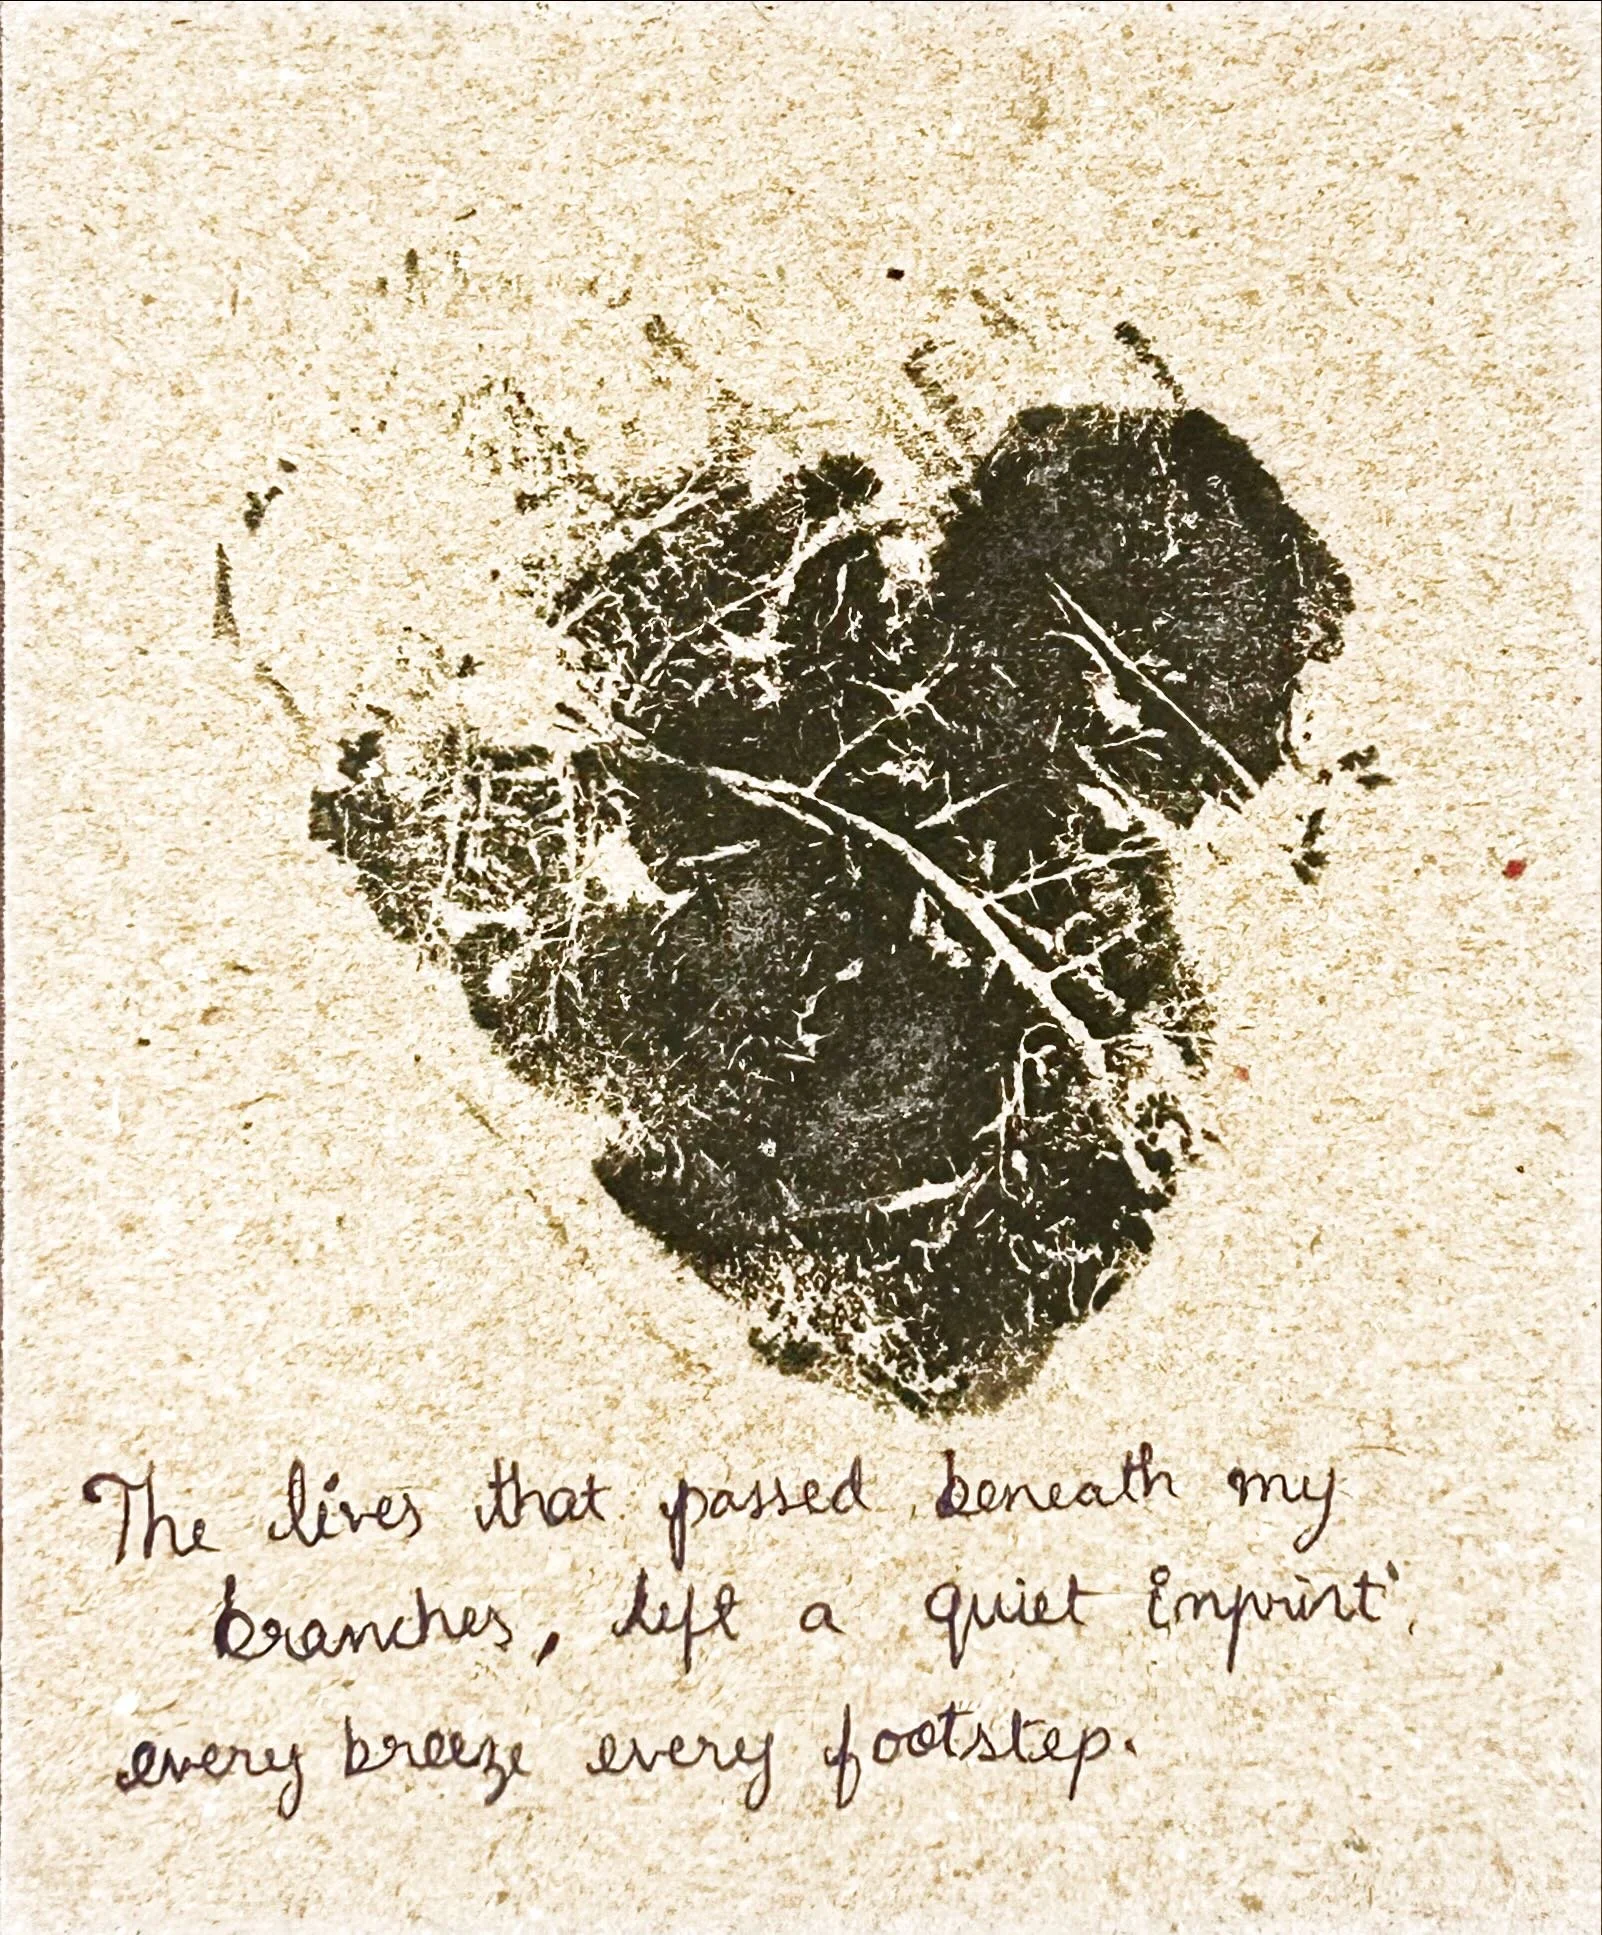 The lives that passed beneath my
branches, left a quiet imprint,
every breeze every footstep.